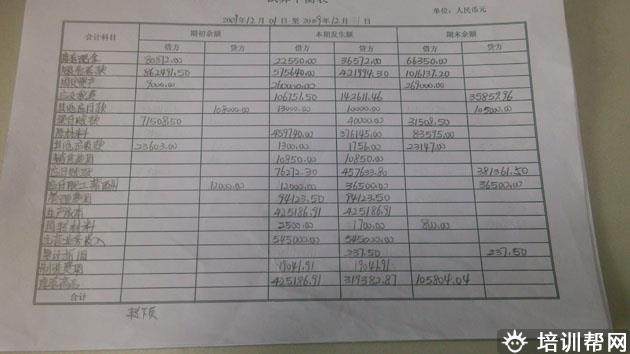 2009年12月01日 至 2009年12月 1日
单位：人民币元
会计科目 期初余额 本期发生额 期末余额
借方 贷方 借方 贷方 借方 贷方
库存现金 80372.00 22550.00 36572.00 66350.00
银行存款 862491.50 575640.00 421994.30 1016137.20
固定资产 9000.00 260000.00 269000.00
应交税费 106751.50 142611.46 35859.96
其他应付款 108000.00 13000.00 10000.00 105000.00
预付账款 71508.50 40000.00 31508.50
原材料 459740.00 376145.00 83595.00
其他应收款 23603.00 1300.00 1756.00 23147.00
销售费用 10850.00 10850.00
应付账款 76272.30 457633.80 381361.50
应付职工薪酬 12000.00 12000.00 36500.00 36500.00
管理费用 94123.50 94123.50
生产成本 425186.91 425186.91
周转材料 2500.00 1700.00 800.00
主营业务收入 545000.00 545000.00
累计折旧 237.50 237.50
制造费用 19041.91 19041.91
库存商品 425186.91 319382.87 105804.04
合计
转下页
培训帮网